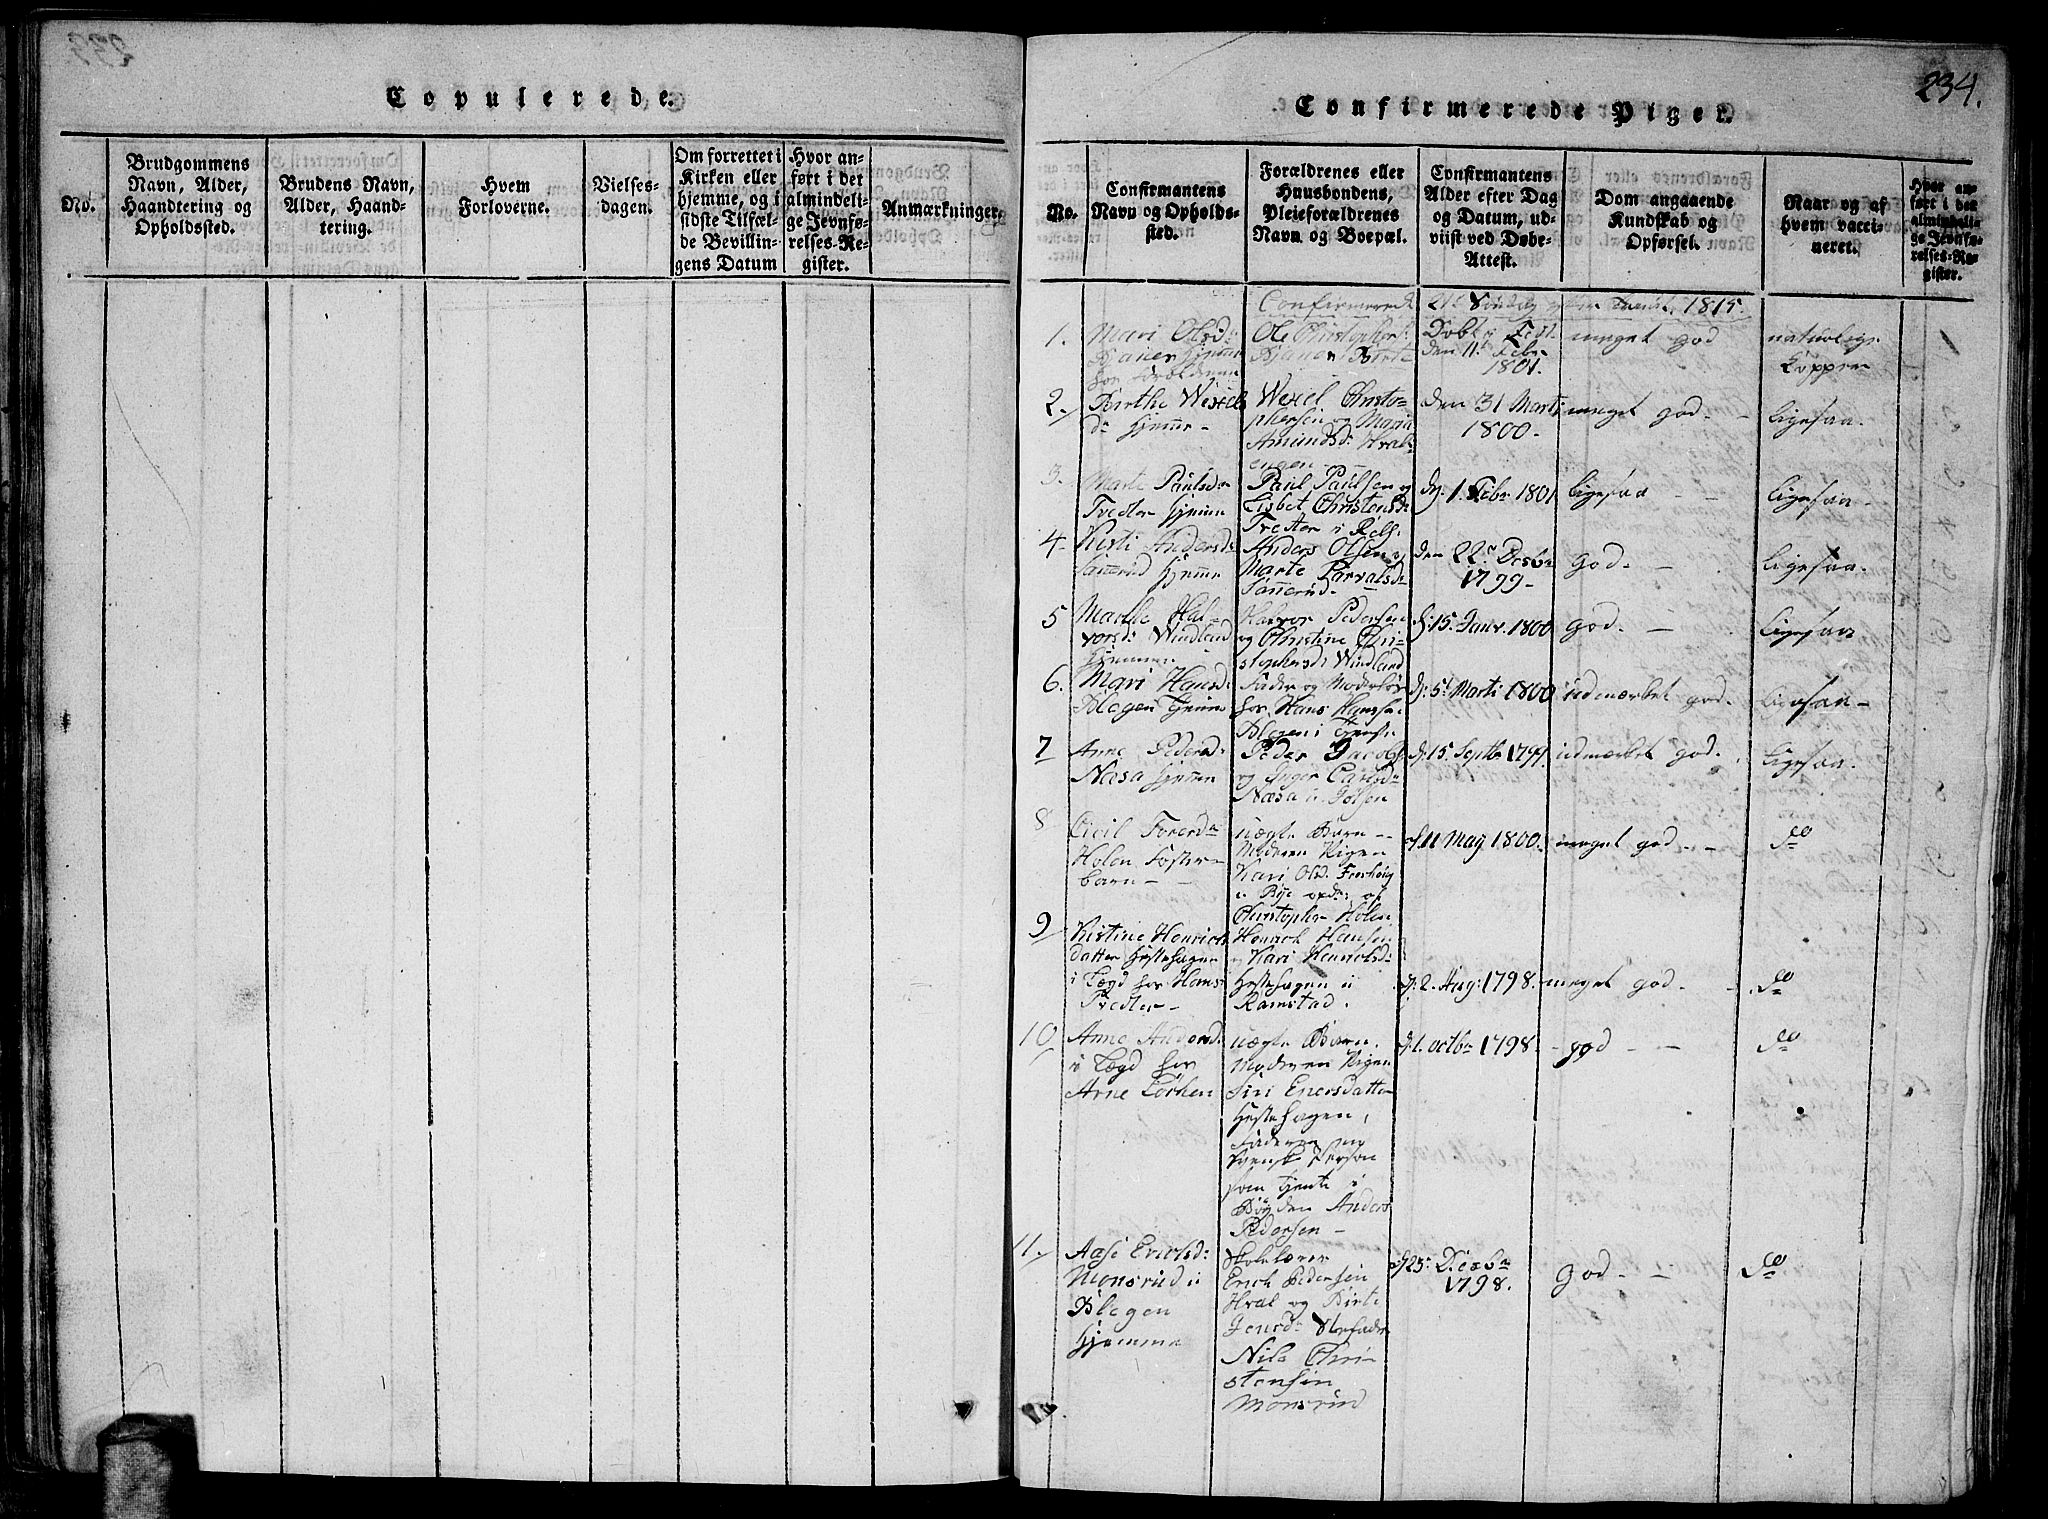 Copulerede.
No.
Brudgommens
Navn, Alder,
Haandtering og
Opholdssted.
Brudens Navn,
Alder, Haand-
tering.
Hvem
Forloverne.
Vielses-
dagen.
Om forrettet i
Kirken eller
hjemme, og i
sidste Tilfæl-
de Bevillin-
gens Datum
Hvor an-
ført i det
almindeli-
ge Jevnfø-
relses-Re-
gister.
Anmærkninger
234.
Confirmerede Piger.
No.
Confirmantens
Navn og Opholds-
sted.
Forældrenes eller
Huusbondens,
Plejeforældrenes
Navn og Boepæl.
Confirmantens
Alder efter Dag
og Datum, ud-
viist ved Døbe-
Attest.
Dom angaaende
Kundskab og
Opførsel.
Naar og af
hvem vacci-
neret.
Hvor an-
ført i det
almindeli-
ge Jevnfø-
relses-Re-
gister.
Confirmerede 21de Søndag efter Trinit. 1815.
1. Mari Olsd:
hjemme
hos Forældrene
Ole Christophers:
Døbt
den 11te Febr
1801.
meget god
naturlige
Kopper
2. Birthe Wexels
dr hjeme -
Wexel Christo-
phersen og Maria
Amundsd: Hval-
engen
den 31 Marti
1800.
meget god -
ligesaa -
3. Marte Paulsdr
Tvedter hjeme
Paul Paulsen og
Lisbet Christensd:
Tvedter i
d: 1. Febr 1801.
ligesaa - -
ligesaa -
4. Kisti Andersd:
Sannerud hjeme
Anders Olsen og
Marte
Sannerud.
den 22de Desbr
1799 -
god. -
ligesaa -
5 Marthe Hal-
vorsd: Windland
hjemme
Halvor Pedersen
og Christine Chri-
stophersd: Windland
d: 15. Janr. 1800
god. -
ligesaa
6. Mari Hansd:
Blegen hjeme
Fader og Moderløs
hos Hans Hansen
Blegen i
d: 5t Marti 1800
udmærket god.
ligesaa -
7 Anne Pedersd:
Næsa hjeme
Peder Jacobs:
og Inger Carlsd:
Næsa i
d: 15. Septbr 1799.
udmærket god.
ligesaa.
8 Cicil Toresdr
Holen Foster-
barn -
uægte Barn -
Moderen Pigen
Kari Olsd.
i Rye opdr: af
Christopher Holen
d. 11 May 1800.
meget god. -
do
9 Kistine Henrichs
datter Hestehagen
i Lægd hos Hans
Tvedter -
Henrich Hansen
og Kari Henrichsd:
Hestehagen u
Ramstad.
d: 2. Aug: 1798.
meget god. -
do
10 Anne Andersd:
i Lægd hos
Arne Lørhen
uægte Barn.
Moderen Pigen
Siri Enersdatter
Hestehagen,
Faderen en
svensk Person
som tjente i
Bøygden Anders
Pedersen -
d. 1. octbr 1798.
- god - -
do
11. Aase Erichsd:
Monsrud u
Blegen
hjemme
Skolelærer
Erich Pedersen
Hval og Birte
Jensdr Stefader
Nils Chri-
stensen
Monsrud
d 23: Decbr
1798.
god. -
do